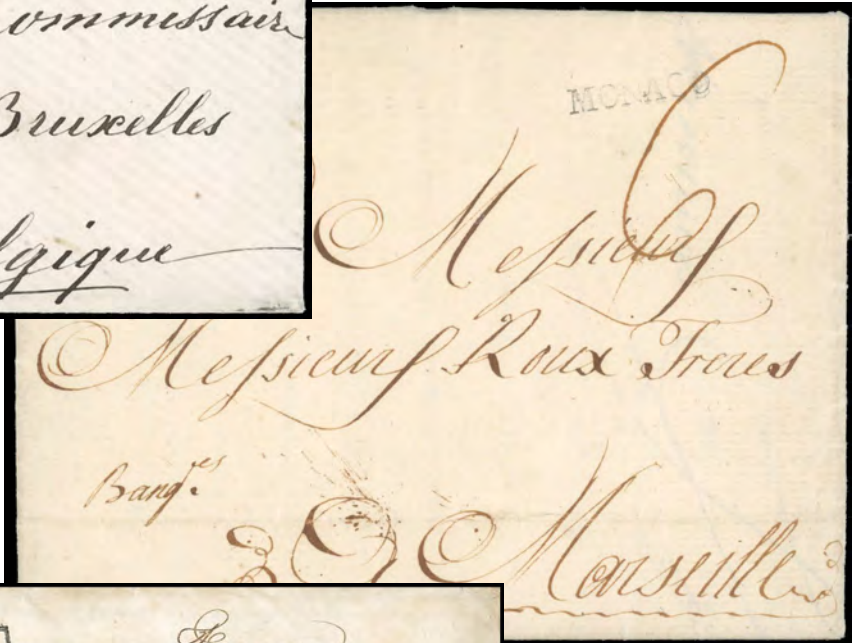 Commissaire
Bruxelles
lgique
MONACO
6
Messieurs
Messieurs Roux Freres
Banq.es
Marseille